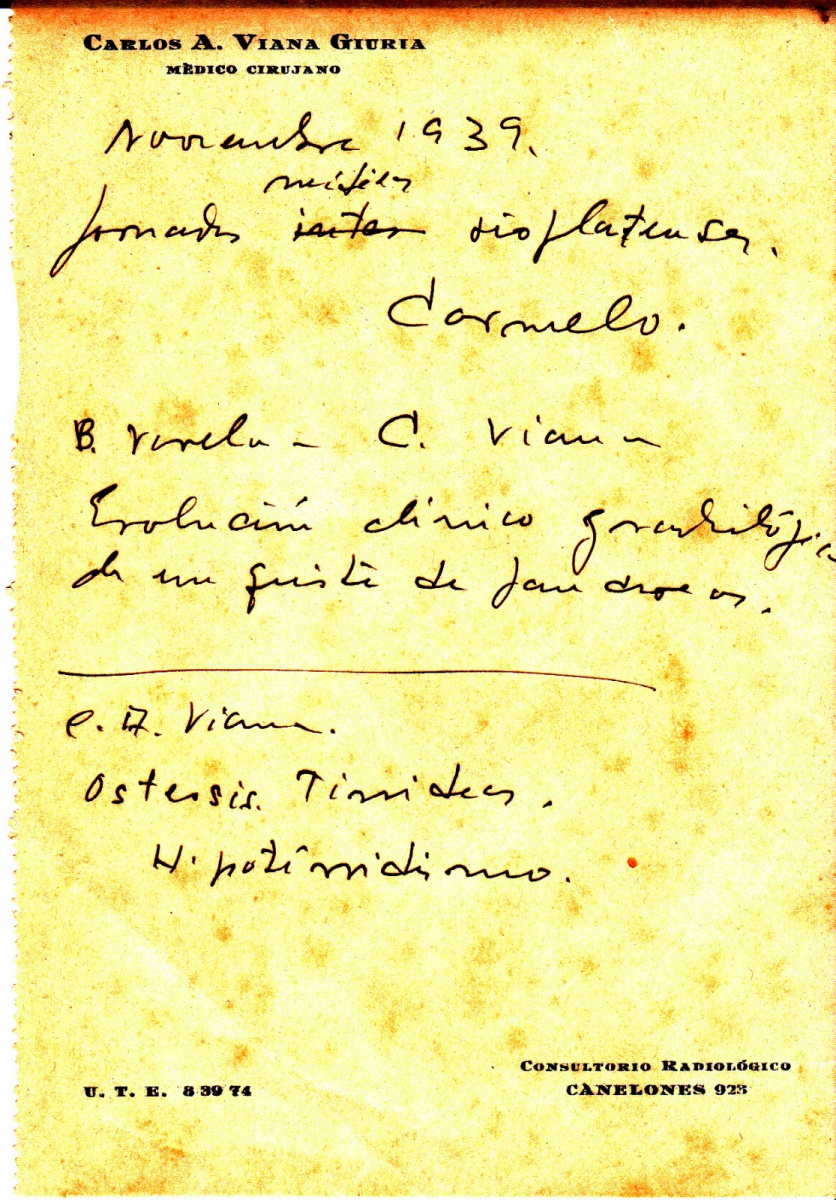 CARLOS A. VIANA GIURIA
MÉDICO CIRUJANO
Noviembre 1939.
médicas
Jornadas inter rioplatenses.
Carmelo.
B. Varela - C. Viana
Evolución clínico y radiológica
de un quiste de páncreas.
C. A. Viana.
Osteosis Tiroideas.
Hipotiroidismo.
CONSULTORIO RADIOLÓGICO
U. T. E. 8 39 74
CANELONES 923